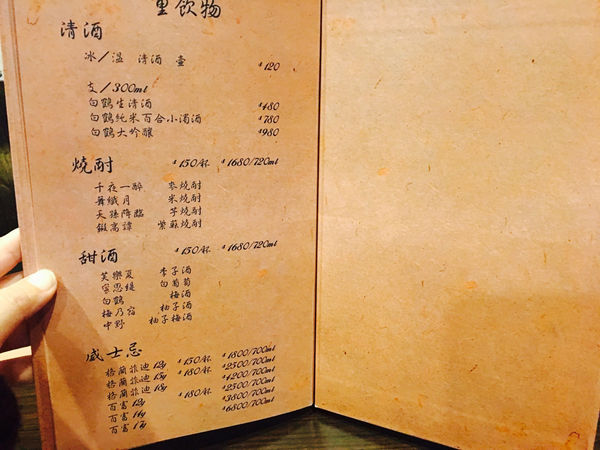 里飲物
清酒
冰／溫 清酒 壺 $120
支／300ml
白鶴生清酒 $480
白鶴純米百合小濁酒 $780
白鶴大吟釀 $980
燒酎 $150/杯 $1680/720ml
千夜一醉 麥燒酎
舞織月 米燒酎
天孫降臨 芋燒酎
鍛高譚 紫蘇燒酎
甜酒 $150/杯 $1680/720ml
芙樂夏 李子酒
寧思緹 白葡萄
白鶴 梅酒
梅乃宿 柚子酒
中野 柚子梅酒
威士忌
格蘭菲迪 12y $150/杯 $1800/700ml
格蘭菲迪 15y $180/杯 $2500/700ml
格蘭菲迪 18y $4200/700ml
百富 12y $180/杯 $2500/700ml
百富 14y $3800/700ml
百富 17y $6800/700ml